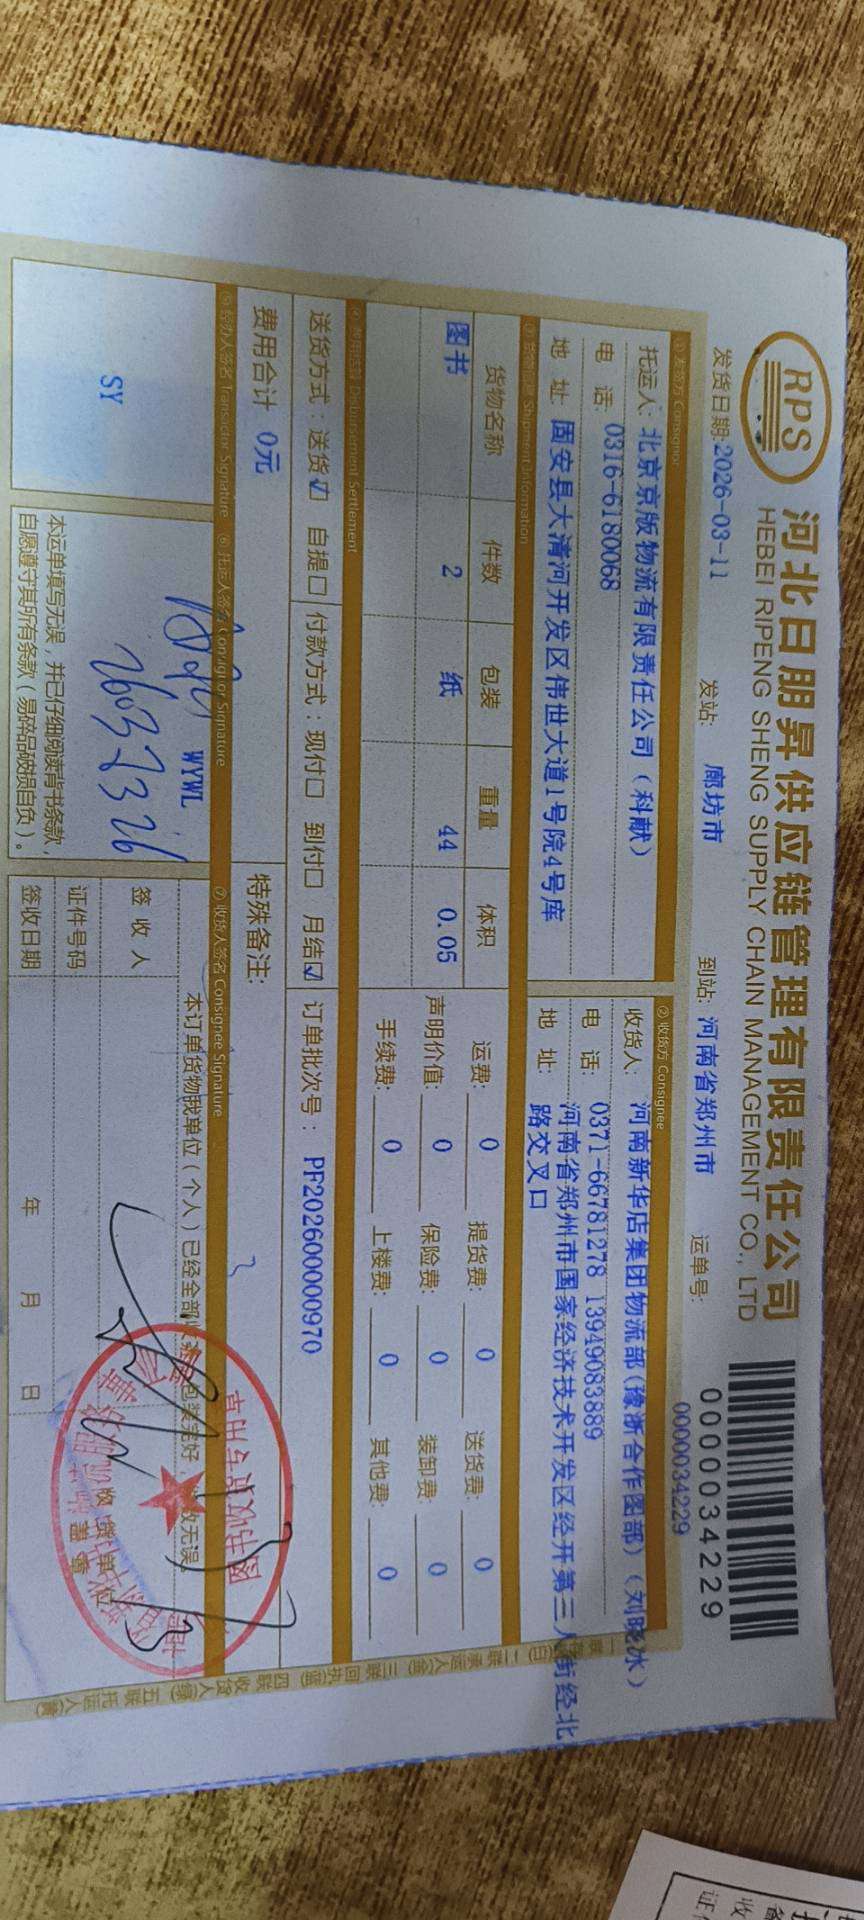 RPS
河北日朋昇供应链管理有限责任公司
HEBEI RIPENG SHENG SUPPLY CHAIN MANAGEMENT CO., LTD
0000034229
发货日期:2026-03-11 发站: 廊坊市 到站: 河南省郑州市 运单号: 0000034229
① 发货方 Consignor
② 收货方 Consignee
托运人: 北京京版物流有限责任公司（科献）
收货人: 河南新华店集团物流部(豫浙合作图部)（刘晓冰）
电 话: 0316-6180068
电 话: 0371-66781278 13949083889
地 址: 固安县大清河开发区伟世大道1号院4号库
地 址: 河南省郑州市国家经济技术开发区经开第三大街经北
路交叉口
③ 货物信息 Shipment Information
货物名称 件数 包装 重量 体积
图书 2 纸 44 0.05
运费: 0 提货费: 0 送货费: 0
声明价值: 0 保险费: 0 装卸费: 0
手续费: 0 上楼费: 0 其他费: 0
④ 费用结算 Disbursement Settlement
送货方式：送货☑ 自提□ 付款方式：现付□ 到付□ 月结☑ 订单批次号： PF202600000970
费用合计 0元
特殊备注:
⑤ 经办人签名 Transactor Signature ⑥ 托运人签名 Consignor Signature ⑦ 收货人签名 Consignee Signature
SY
WYWL
本运单填写无误，并已仔细阅读背书条款，
自愿遵守其所有条款（易碎品破损自负）。
本订单货物我单位（个人）已经全部 包装完好， 无误
签 收 人
证件号码
签收日期 年 月 日
收货单位
盖章
图书收货专用章
一联 二联承运人(金) 三联回执(蓝) 四联收货人(绿) 五联托运人(黄)